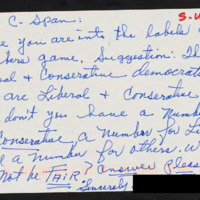 C-Span: S-W
e you are into the labels
bers game. Suggestion: Th
l & Conservative democrat
are Liberal & Conservative
don't you have a Numb
Conservative a number for Li
a number for others. W
Not be FAIR? Answer Pleas
Sincerely,